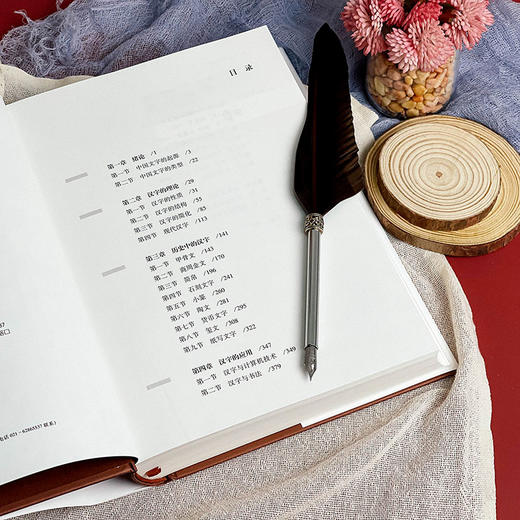 目 录
第一章 绪论 /1
第一节 中国文字的起源 /3
第二节 中国文字的类型 /22
第二章 汉字的理论 /29
第一节 汉字的性质 /31
第二节 汉字的结构 /55
第三节 汉字的简化 /85
第四节 现代汉字 /113
第三章 历史中的汉字 /141
第一节 甲骨文 /143
第二节 商周金文 /170
第三节 简帛 /196
第四节 石刻文字 /241
第五节 小篆 /260
第六节 陶文 /281
第七节 货币文字 /295
第八节 玺文 /308
第九节 纸写文字 /322
第四章 汉字的应用 /347
第一节 汉字与计算机技术 /349
第二节 汉字与书法 /379
37
话 021-62865537 联系)